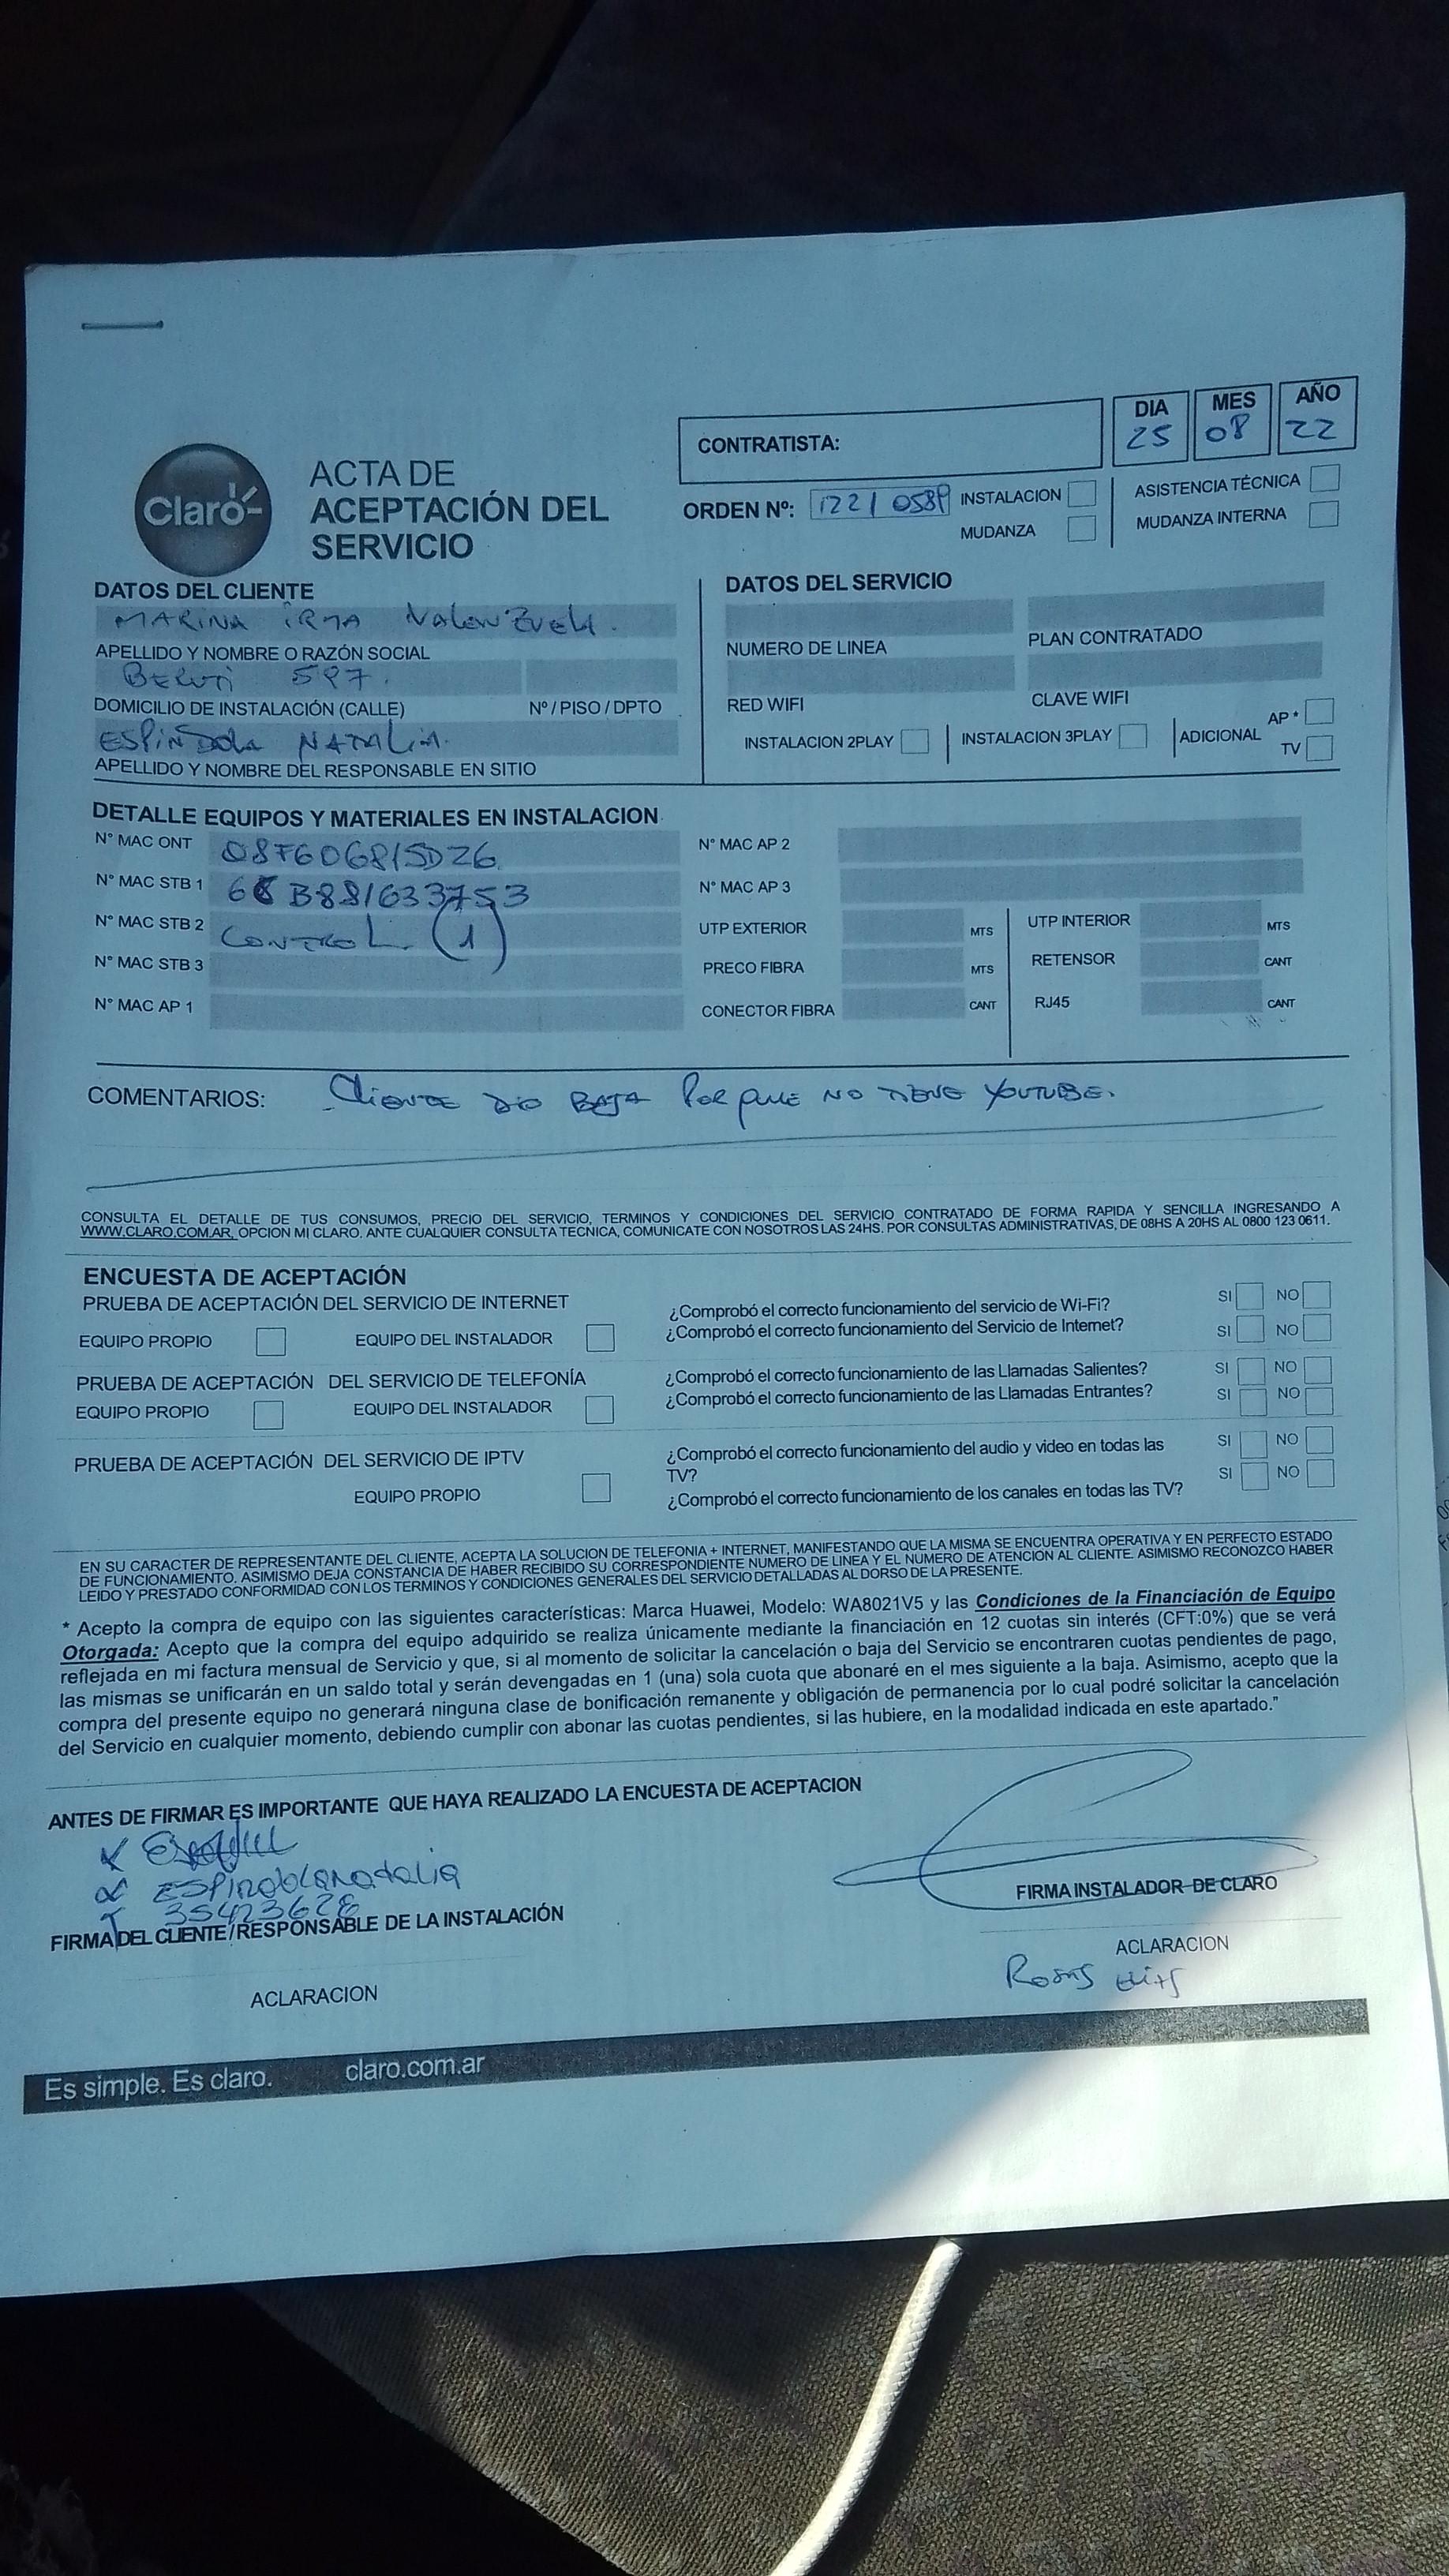 CONTRATISTA:
DIA MES AÑO
25 08 22
Claro
ACTA DE
ACEPTACIÓN DEL
SERVICIO
ORDEN Nº: 1221 0589
INSTALACION
MUDANZA
ASISTENCIA TÉCNICA
MUDANZA INTERNA
DATOS DEL CLIENTE
MARINA IRMA VALENZUELA.
APELLIDO Y NOMBRE O RAZÓN SOCIAL
BERUTI 597.
DOMICILIO DE INSTALACIÓN (CALLE) Nº / PISO / DPTO
ESPINDOLA NATALIA.
APELLIDO Y NOMBRE DEL RESPONSABLE EN SITIO
DATOS DEL SERVICIO
NUMERO DE LINEA PLAN CONTRATADO
RED WIFI CLAVE WIFI
INSTALACION 2PLAY INSTALACION 3PLAY ADICIONAL AP *
TV
DETALLE EQUIPOS Y MATERIALES EN INSTALACION
N° MAC ONT 087606815D26
N° MAC STB 1 B881633753
N° MAC STB 2 CONTROL (1)
N° MAC STB 3
N° MAC AP 1
N° MAC AP 2
N° MAC AP 3
UTP EXTERIOR MTS UTP INTERIOR MTS
PRECO FIBRA MTS RETENSOR CANT
CONECTOR FIBRA CANT RJ45 CANT
COMENTARIOS: Cliente DIO BAJA Porque NO TIENE YOUTUBE.
CONSULTA EL DETALLE DE TUS CONSUMOS, PRECIO DEL SERVICIO, TERMINOS Y CONDICIONES DEL SERVICIO CONTRATADO DE FORMA RAPIDA Y SENCILLA INGRESANDO A
WWW.CLARO.COM.AR, OPCION MI CLARO. ANTE CUALQUIER CONSULTA TECNICA, COMUNICATE CON NOSOTROS LAS 24HS. POR CONSULTAS ADMINISTRATIVAS, DE 08HS A 20HS AL 0800 123 0611.
ENCUESTA DE ACEPTACIÓN
PRUEBA DE ACEPTACIÓN DEL SERVICIO DE INTERNET
EQUIPO PROPIO EQUIPO DEL INSTALADOR
¿Comprobó el correcto funcionamiento del servicio de Wi-Fi? SI NO
¿Comprobó el correcto funcionamiento del Servicio de Internet? SI NO
PRUEBA DE ACEPTACIÓN DEL SERVICIO DE TELEFONÍA
EQUIPO PROPIO EQUIPO DEL INSTALADOR
¿Comprobó el correcto funcionamiento de las Llamadas Salientes? SI NO
¿Comprobó el correcto funcionamiento de las Llamadas Entrantes? SI NO
PRUEBA DE ACEPTACIÓN DEL SERVICIO DE IPTV
EQUIPO PROPIO
¿Comprobó el correcto funcionamiento del audio y video en todas las SI NO
TV?
¿Comprobó el correcto funcionamiento de los canales en todas las TV? SI NO
EN SU CARACTER DE REPRESENTANTE DEL CLIENTE, ACEPTA LA SOLUCION DE TELEFONIA + INTERNET, MANIFESTANDO QUE LA MISMA SE ENCUENTRA OPERATIVA Y EN PERFECTO ESTADO
DE FUNCIONAMIENTO. ASIMISMO DEJA CONSTANCIA DE HABER RECIBIDO SU CORRESPONDIENTE NUMERO DE LINEA Y EL NUMERO DE ATENCIÓN AL CLIENTE. ASIMISMO RECONOZCO HABER
LEIDO Y PRESTADO CONFORMIDAD CON LOS TERMINOS Y CONDICIONES GENERALES DEL SERVICIO DETALLADAS AL DORSO DE LA PRESENTE.
* Acepto la compra de equipo con las siguientes características: Marca Huawei, Modelo: WA8021V5 y las Condiciones de la Financiación de Equipo
Otorgada: Acepto que la compra del equipo adquirido se realiza únicamente mediante la financiación en 12 cuotas sin interés (CFT:0%) que se verá
reflejada en mi factura mensual de Servicio y que, si al momento de solicitar la cancelación o baja del Servicio se encontraren cuotas pendientes de pago,
las mismas se unificarán en un saldo total y serán devengadas en 1 (una) sola cuota que abonaré en el mes siguiente a la baja. Asimismo, acepto que la
compra del presente equipo no generará ninguna clase de bonificación remanente y obligación de permanencia por lo cual podré solicitar la cancelación
del Servicio en cualquier momento, debiendo cumplir con abonar las cuotas pendientes, si las hubiere, en la modalidad indicada en este apartado.”
ANTES DE FIRMAR ES IMPORTANTE QUE HAYA REALIZADO LA ENCUESTA DE ACEPTACION
ESPINDOLA natalia
35423628
FIRMA DEL CLIENTE/RESPONSABLE DE LA INSTALACIÓN
ACLARACION
FIRMA INSTALADOR DE CLARO
ACLARACION
Rosas Elias
Es simple. Es claro. claro.com.ar